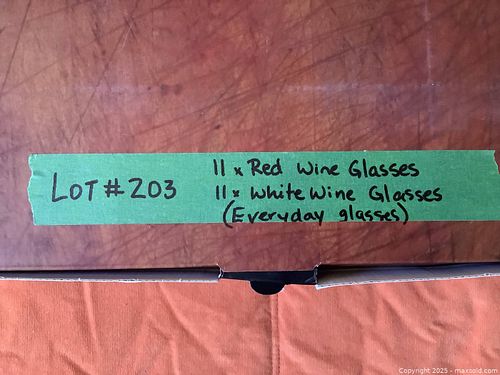 LOT # 203
11 x Red Wine Glasses
11 x White Wine Glasses
(Everyday glasses)
Copyright 2025 - maxsold.com